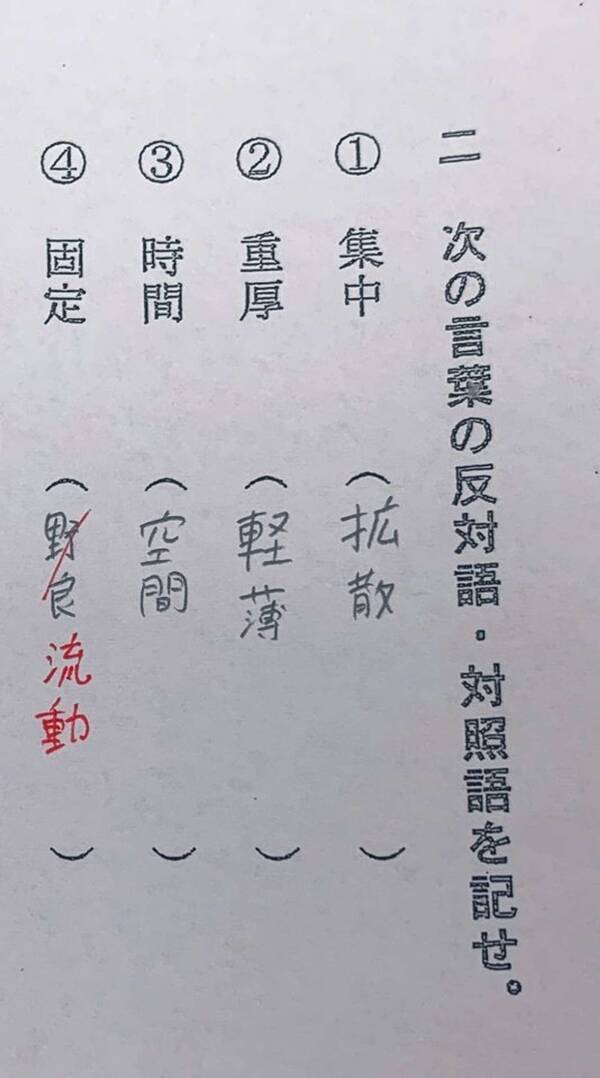 二 次の言葉の反対語・対照語を記せ。
① 集中 （拡散）
② 重厚 （軽薄）
③ 時間 （空間）
④ 固定 （野良 流動）